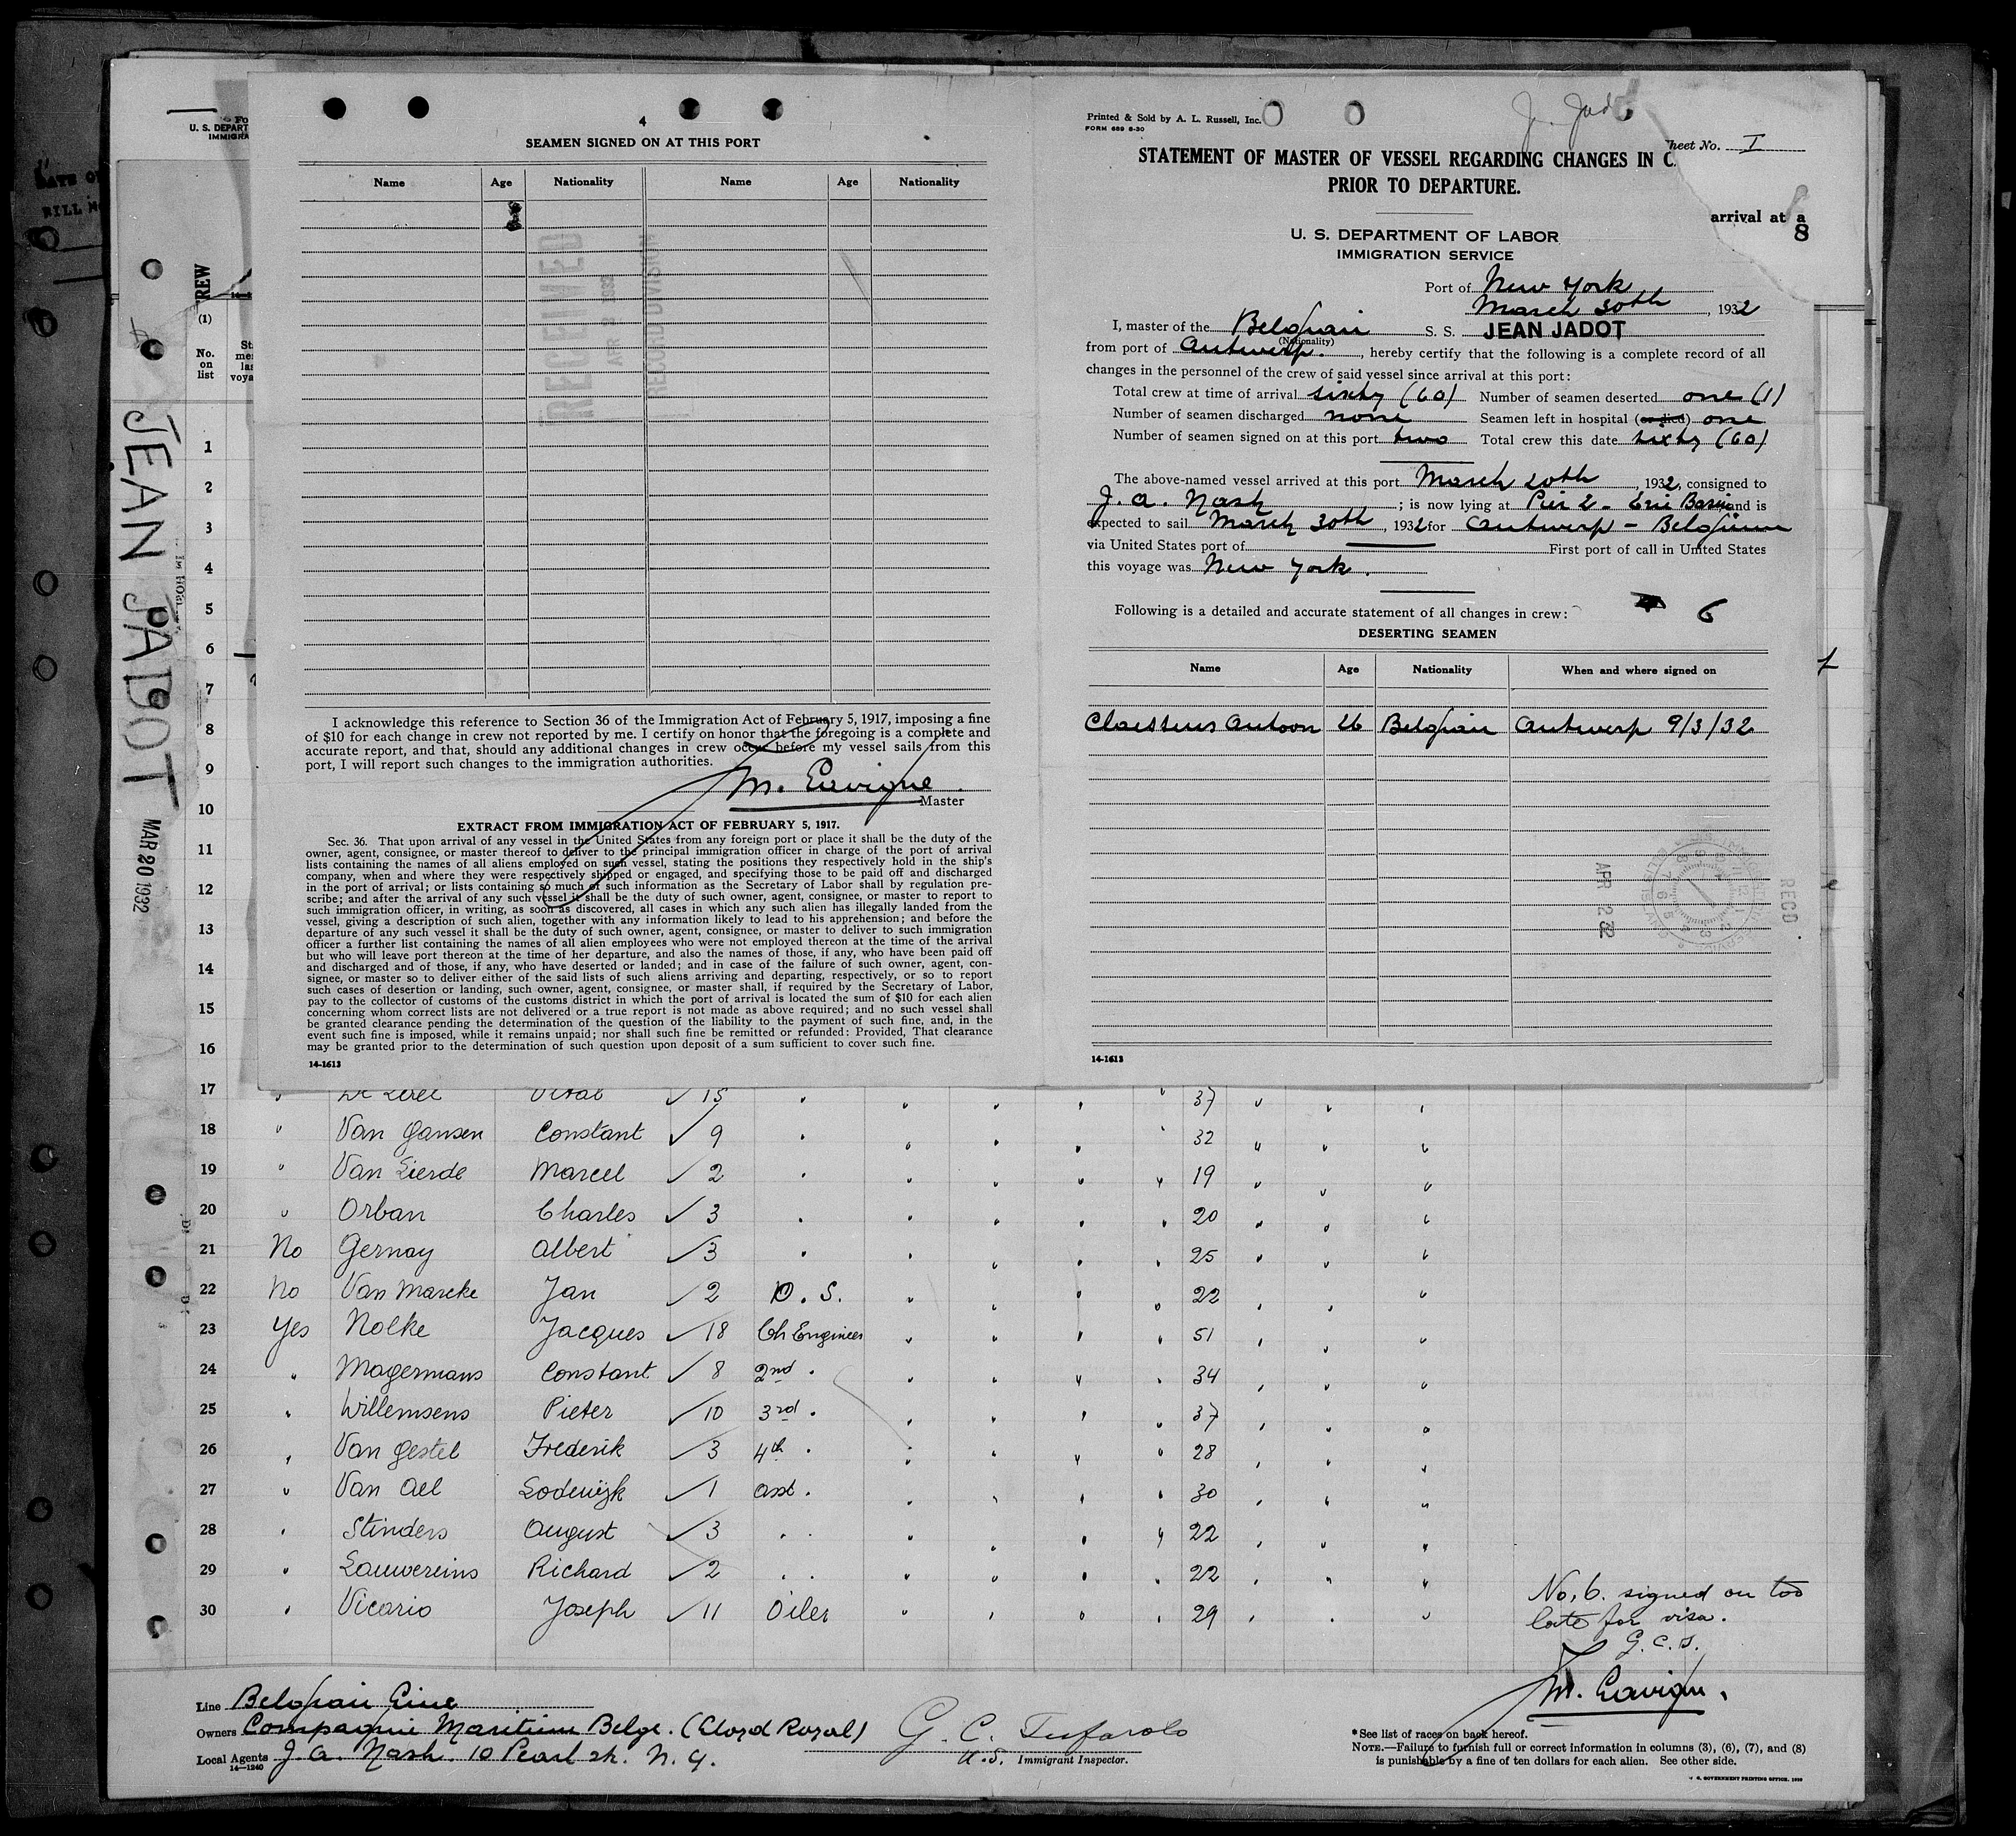 4
SEAMEN SIGNED ON AT THIS PORT
Name Age Nationality Name Age Nationality
RECEIVED
RECORD DIVISION
I acknowledge this reference to Section 36 of the Immigration Act of February 5, 1917, imposing a fine
of $10 for each change in crew not reported by me. I certify on honor that the foregoing is a complete and
accurate report, and that, should any additional changes in crew occur before my vessel sails from this
port, I will report such changes to the immigration authorities.
Master
EXTRACT FROM IMMIGRATION ACT OF FEBRUARY 5, 1917.
Sec. 36. That upon arrival of any vessel in the United States from any foreign port or place it shall be the duty of the
owner, agent, consignee, or master thereof to deliver to the principal immigration officer in charge of the port of arrival
lists containing the names of all aliens employed on such vessel, stating the positions they respectively hold in the ship's
company, when and where they were respectively shipped or engaged, and specifying those to be paid off and discharged
in the port of arrival; or lists containing so much of such information as the Secretary of Labor shall by regulation pre-
scribe; and after the arrival of any such vessel it shall be the duty of such owner, agent, consignee, or master to report to
such immigration officer, in writing, as soon as discovered, all cases in which any such alien has illegally landed from the
vessel, giving a description of such alien, together with any information likely to lead to his apprehension; and before the
departure of any such vessel it shall be the duty of such owner, agent, consignee, or master to deliver to such immigration
officer a further list containing the names of all alien employees who were not employed thereon at the time of the arrival
but who will leave port thereon at the time of her departure, and also the names of those, if any, who have been paid off
and discharged and of those, if any, who have deserted or landed; and in case of the failure of such owner, agent, con-
signee, or master so to deliver either of the said lists of such aliens arriving and departing, respectively, or so to report
such cases of desertion or landing, such owner, agent, consignee, or master shall, if required by the Secretary of Labor,
pay to the collector of customs of the customs district in which the port of arrival is located the sum of $10 for each alien
concerning whom correct lists are not delivered or a true report is not made as above required; and no such vessel shall
be granted clearance pending the determination of the question of the liability to the payment of such fine, and, in the
event such fine is imposed, while it remains unpaid; nor shall such fine be remitted or refunded: Provided, That clearance
may be granted prior to the determination of such question upon deposit of a sum sufficient to cover such fine.
14-1613
Printed & Sold by A. L. Russell, Inc.
FORM 689 8-30
heet No. I
STATEMENT OF MASTER OF VESSEL REGARDING CHANGES IN C
PRIOR TO DEPARTURE.
arrival at a
8
U. S. DEPARTMENT OF LABOR
IMMIGRATION SERVICE
Port of New York
March 30th, 1932
I, master of the Belgian S. S. JEAN JADOT
(Nationality)
from port of Antwerp., hereby certify that the following is a complete record of all
changes in the personnel of the crew of said vessel since arrival at this port:
Total crew at time of arrival sixty (60) Number of seamen deserted one (1)
Number of seamen discharged none Seamen left in hospital (or died) one
Number of seamen signed on at this port two Total crew this date sixty (60)
The above-named vessel arrived at this port March 20th, 1932, consigned to
J. A. Nash; is now lying at Pier 2 - Erie Basin and is
expected to sail March 30th, 1932 for Antwerp - Belgium
via United States port of First port of call in United States
this voyage was New York.
Following is a detailed and accurate statement of all changes in crew: 6
DESERTING SEAMEN
Name Age Nationality When and where signed on
Claessens Antoon 26 Belgian Antwerp 9/3/32
RECD
APR 2 32
14-1613
U. S. DEPART
IMMIGRA
REW
(1)
No. on list
JEAN JADOT
MAR 20 1932
1
2
3
4
5
6
7
8
9
10
11
12
13
14
15
16
17 15 37
18 Van Gansen Constant 9 32
19 Van Lierde Marcel 2 19
20 Orban Charles 3 20
21 No Gernay Albert 3 25
22 No Van Marcke Jan 2 D. S. 22
23 Yes Nolke Jacques 18 Ch Engineer 51
24 " Magermans Constant 8 2nd " 34
25 " Willemsens Pieter 10 3rd " 37
26 " Van Gestel Frederik 3 4th " 28
27 " Van Ael Lodewijk 1 asst. 30
28 " Stinders August 3 " " 22
29 " Lauwereins Richard 2 " " 22
30 " Vicario Joseph 11 Oiler 29
No. 6. signed on too
late for visa.
G. C. T.
Line Belgian Line
Owners Compagnie Maritime Belge. (Lloyd Royal)
Local Agents J. A. Nash. 10 Pearl St. N. Y.
14-1240
U.S. Immigrant Inspector.
*See list of races on back hereof.
NOTE.—Failure to furnish full or correct information in columns (3), (6), (7), and (8)
is punishable by a fine of ten dollars for each alien. See other side.